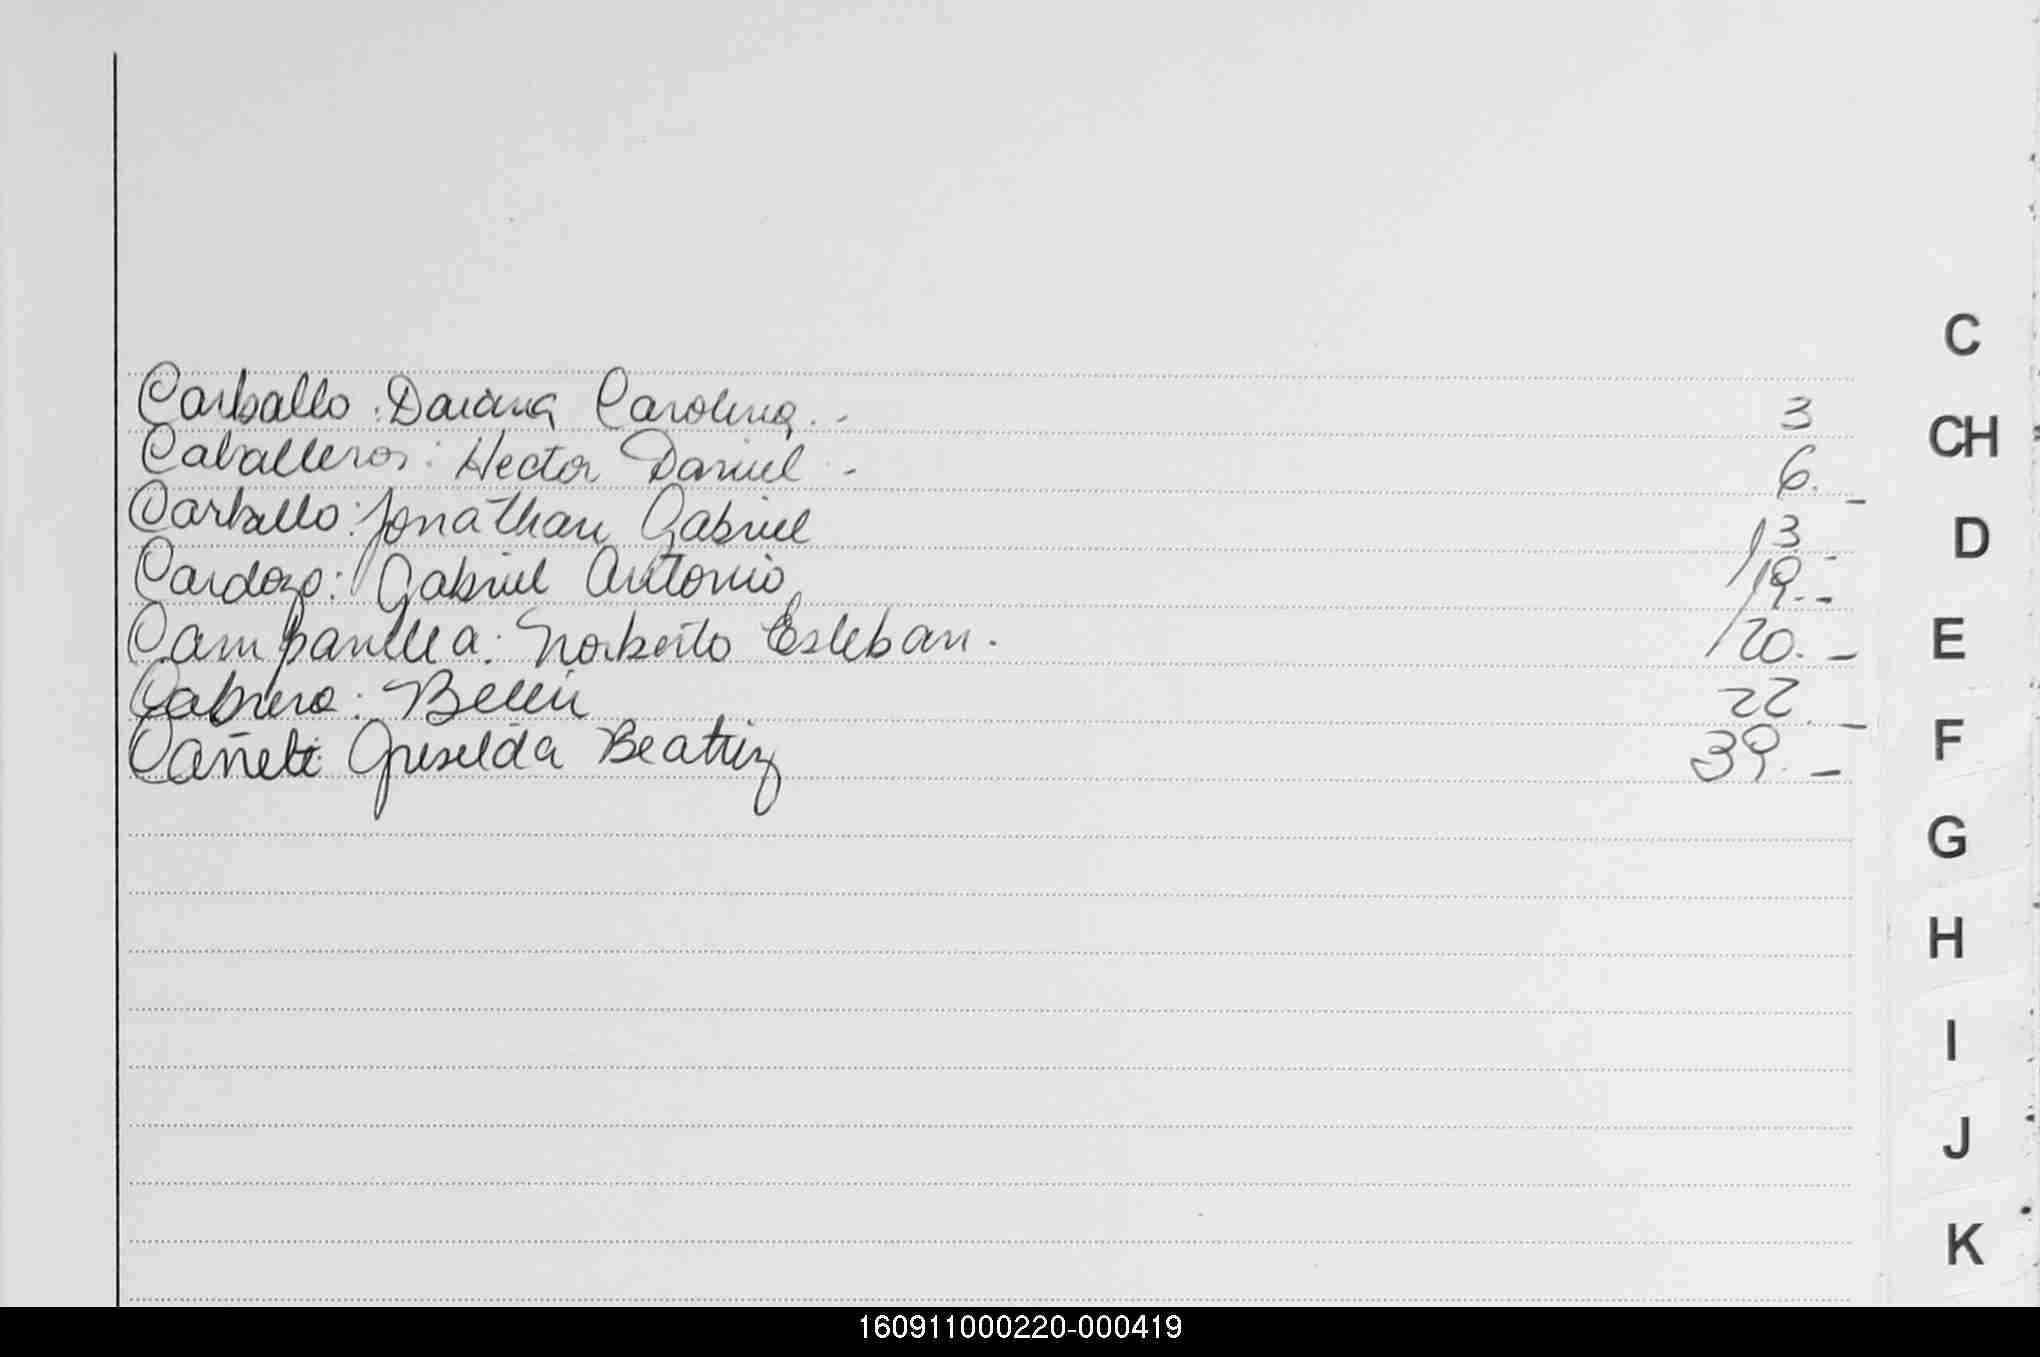 C
Carballo: Daiana Carolina.- 3
CH
Caballeros: Hector Daniel.- 6.-
Carballo: Jonathan Gabriel 13.-
D
Cardozo: Gabriel Antonio 19.-
Campanella: Norberto Esteban. 20.-
E
Cabrera: Belen 22.-
Cañete Griselda Beatriz 39.-
F
G
H
I
J
K
160911000220-000419